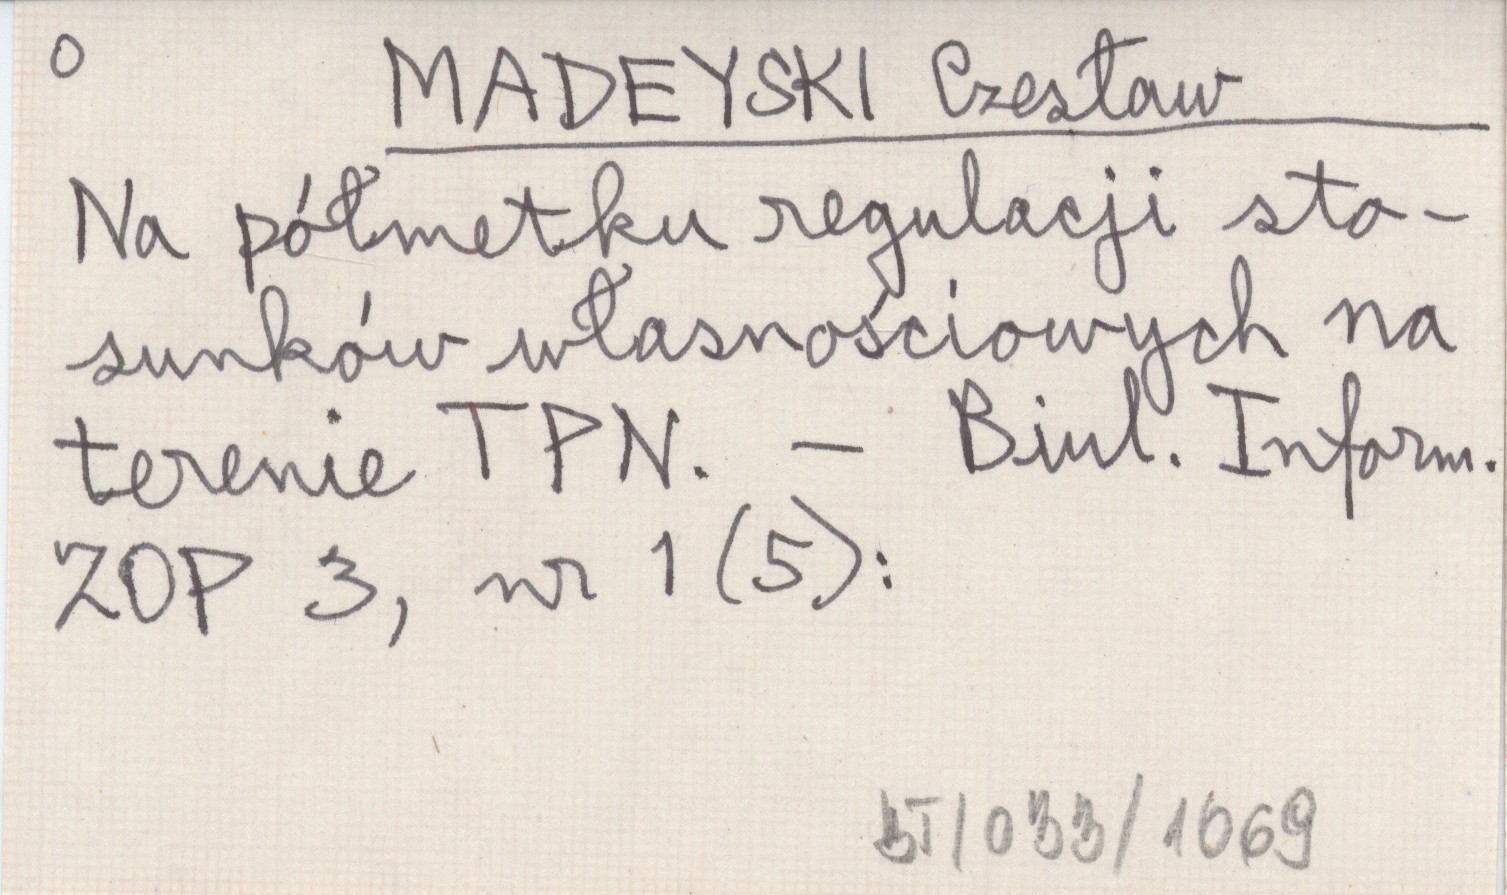 o
MADEYSKI Czesław
Na półmetku regulacji sto-
sunków własnościowych na
terenie TPN. — Biul. Inform.
ZOP 3, nr 1 (5):
BT/033/1069